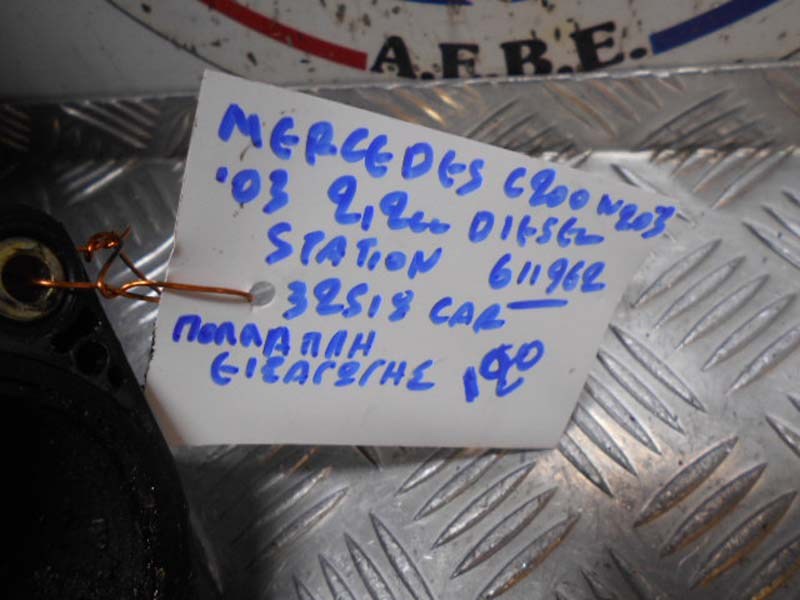 A.F.B.E.
MERCEDES C200 W203
'03 2,2cc DIESEL
STATION 611962
32518 CAR
ΠΟΛΛΑΠΛΗ
ΕΙΣΑΓΩΓΗΣ